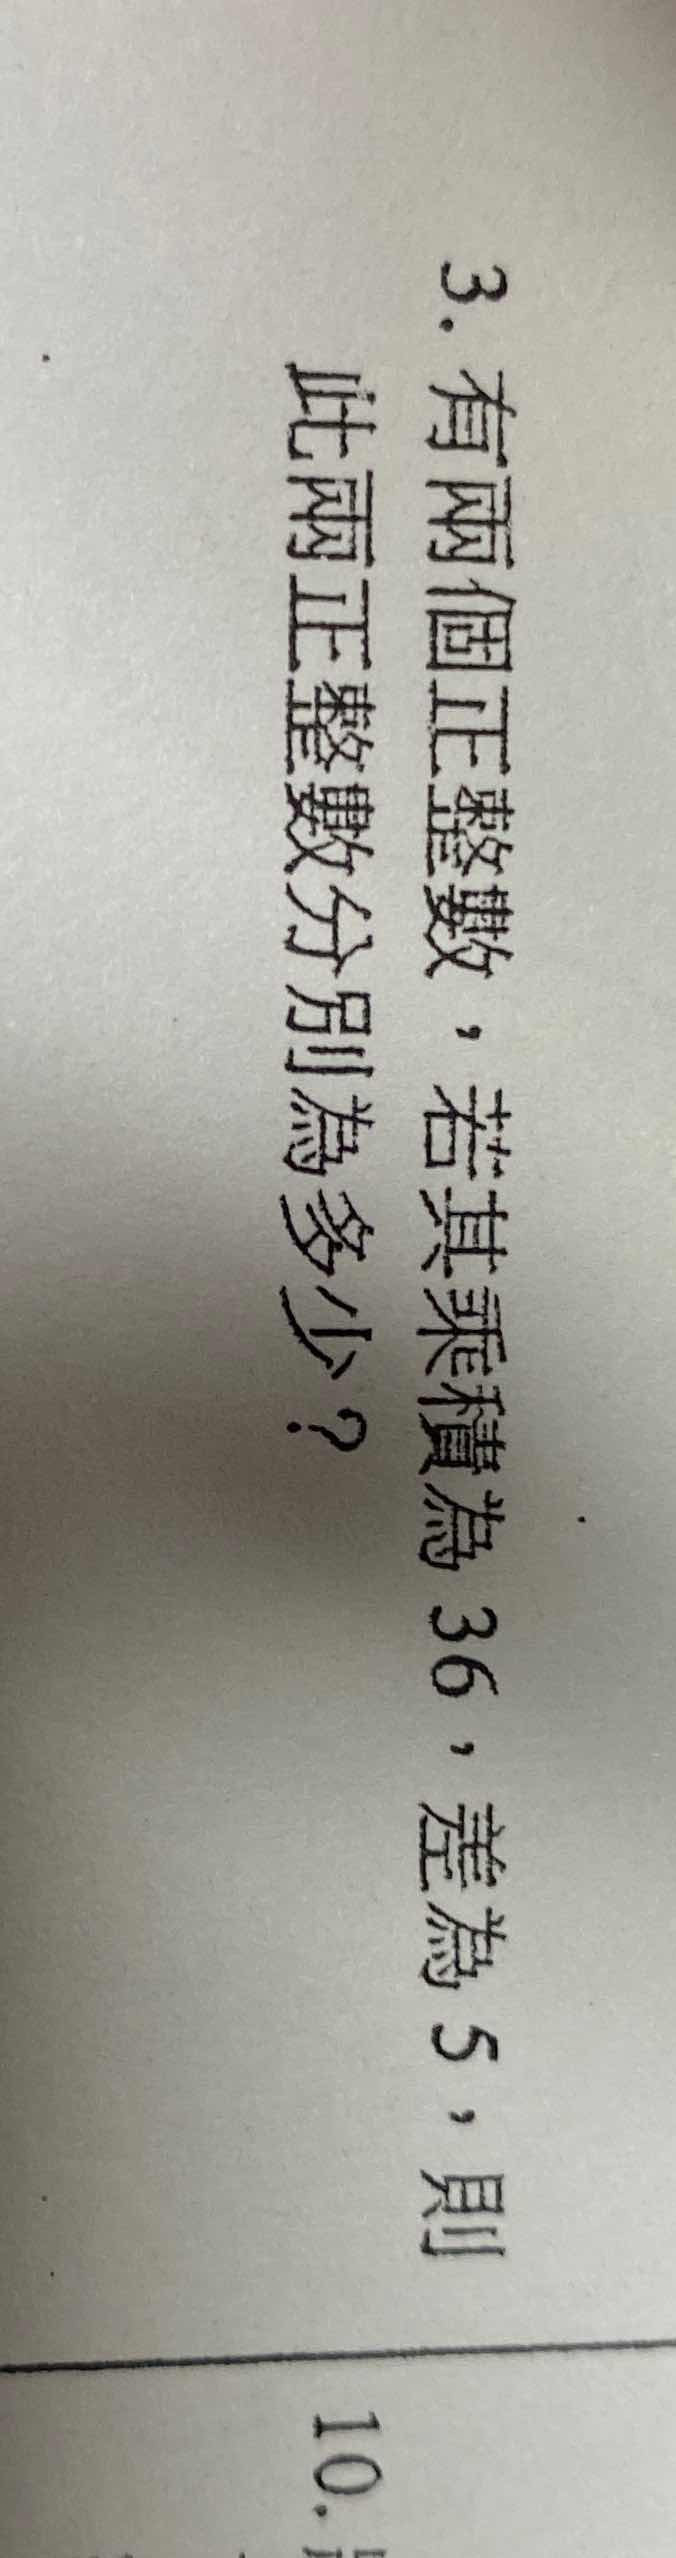 3. 有兩個正整數，若其乘積為 36，差為 5，則
此兩正整數分別為多少？
10.